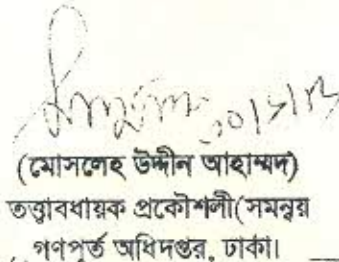 (মোসলেহ উদ্দীন আহাম্মদ)
তত্ত্বাবধায়ক প্রকৌশলী(সমন্বয়
গণপূর্ত অধিদপ্তর, ঢাকা।